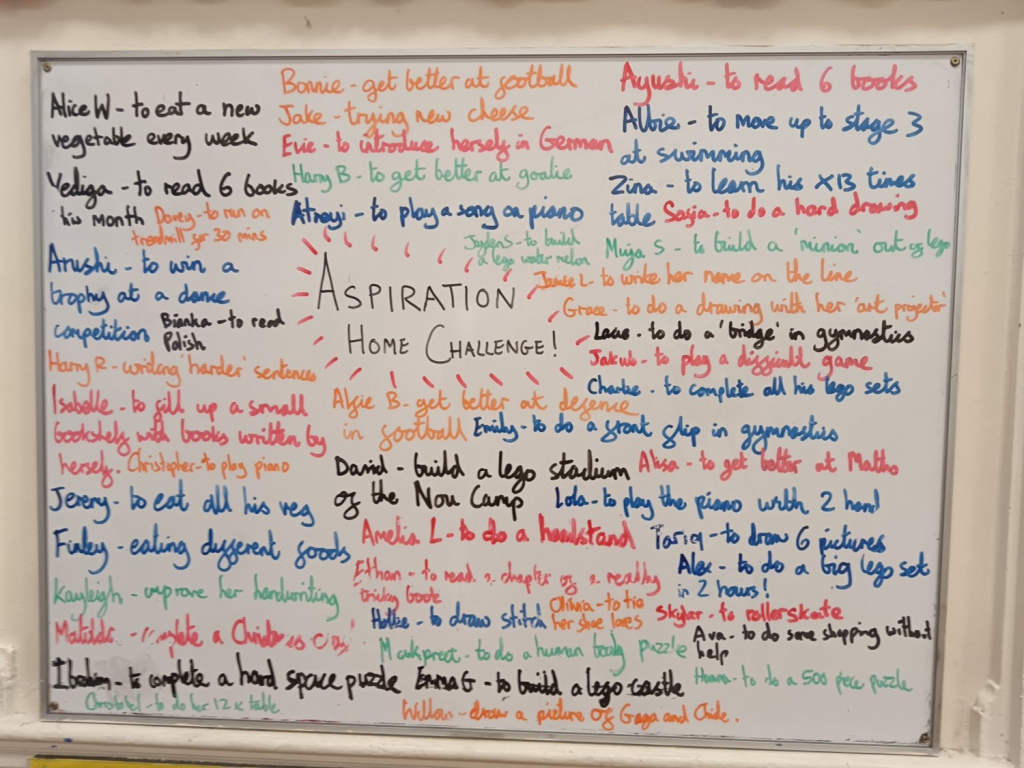 Alice W - to eat a new
vegetable every week
Bonnie - get better at football
Jake - trying new cheese
Evie - to introduce herself in German
Harry B - to get better at goalie
Ayushi - to read 6 books
Albie - to move up to stage 3
at swimming
Yediga - to read 6 books
his month
Dovey - to run on
treadmill for 30 mins
Atreyi - to play a song on piano
Zina - to learn his x13 times
table
Sasja - to do a hard drawing
Jayden S - to build
a lego water melon
Musa S - to build a 'minion' out of lego
Arushi - to win a
trophy at a dance
competition
Bianka - to read
Polish
Harry R - writing 'harder' sentences
ASPIRATION
HOME CHALLENGE!
Jamie L - to write her name on the line
Grace - to do a drawing with her 'art projector'
to do a 'bridge' in gymnastics
Jakub - to play a difficult game
Charlie - to complete all his lego sets
Isabelle - to fill up a small
bookshelf with books written by
herself.
Christopher - to play piano
Alfie B - get better at defence
in football
Emily - to do a front flip in gymnastics
David - build a lego stadium
of the Nou Camp
Alisa - to get better at Maths
Lola - to play the piano with 2 hand
Jerery - to eat all his veg
Finley - eating different foods
Amelia L - to do a handstand
Tariq - to draw 6 pictures
Ethan - to read a chapter of a really
tricky book
Alex - to do a big lego set
in 2 hours!
Kayleigh - improve her handwriting
Hollie - to draw stitch
Olivia - to tie
her shoe laces
Skylar - to rollerskate
Matilda - complete a Christmas
Manpreet - to do a human body puzzle
Ava - to do some shopping without
help
Ibrahim - to complete a hard space puzzle
Emma G - to build a lego castle
Hanna - to do a 500 piece puzzle
to do her 12x table
Willow - draw a picture of Gaga and